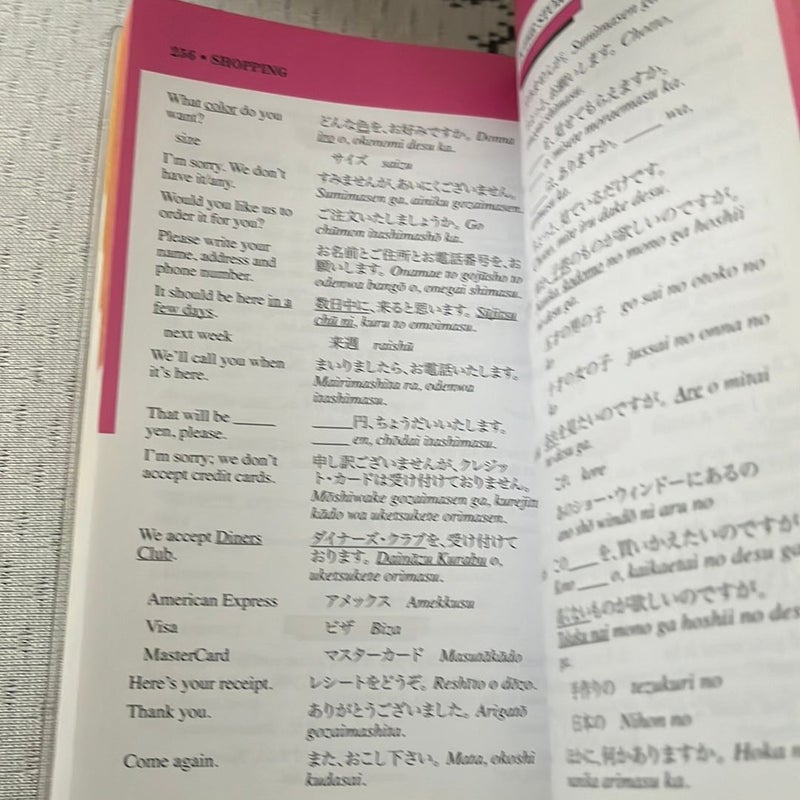 256 • SHOPPING
What color do you
want?
どんな色を、お好みですか。 Donna
iro o, okonomi desu ka.
size
サイズ saizu
I'm sorry. We don't
have it/any.
すみませんが、あいにくございません。
Sumimasen ga, ainiku gozaimasen.
Would you like us to
order it for you?
ご注文いたしましょうか。 Go
chūmon itashimashō ka.
Please write your
name, address and
phone number.
お名前とご住所とお電話番号を、お
願いします。 Onamae to gojūsho to
odenwa bangō o, onegai shimasu.
It should be here in a
few days.
数日中に、来ると思います。 Sūjitsu
chū ni, kuru to omoimasu.
next week
来週 raishū
We'll call you when
it's here.
まいりましたら、お電話いたします。
Mairimashita ra, odenwa
itashimasu.
That will be _____
yen, please.
_____円、ちょうだいいたします。
_____ en, chōdai itashimasu.
I'm sorry; we don't
accept credit cards.
申し訳ございませんが、クレジッ
ト・カードは受け付けておりません。
Mōshiwake gozaimasen ga, kurejitto
kādo wa uketsukete orimasen.
We accept Diners
Club.
ダイナーズ・クラブを、受け付けて
おります。 Daināzu Kurabu o,
uketsukete orimasu.
American Express
アメックス Amekkusu
Visa
ビザ Biza
MasterCard
マスターカード Masutākādo
Here's your receipt.
レシートをどうぞ。 Reshīto o dōzo.
Thank you.
ありがとうございました。 Arigatō
gozaimashita.
Come again.
また、おこし下さい。 Mata, okoshi
kudasai.
Sumimasen ga
お願いします。 Chotto,
見せてもらえますか。
o misete moraemasu ka.
ありますか。 _____ wa,
見ているだけです。
mite iru dake desu.
のものが欲しいのですが。
kodomo no mono ga hoshii
の男の子 go sai no otoko no
の女の子 jussai no onna no
を見たいのですが。 Are o mitai
no desu ga.
これ kore
のショー・ウィンドーにあるの
no shō windō ni aru no
この_____を、買いかえたいのですが
Kono _____ o, kaikaetai no desu ga
ものが欲しいのですが。
mono ga hoshii no des
ga.
手作りの tezukuri no
日本の Nihon no
ほかに、何かありますか。 Hoka n
nanika arimasu ka.